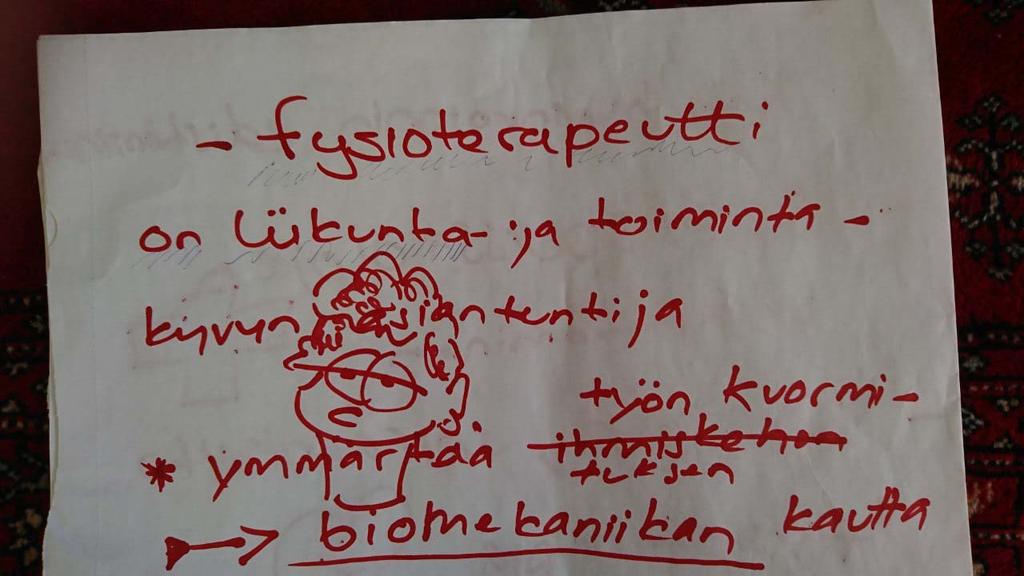 - fysioterapeutti
on liikunta- ja toiminta-
kyvyn asiantuntija
työn kuormi-
* ymmärtää ihmiskehoa
tuksen
→ biomekaniikan kautta